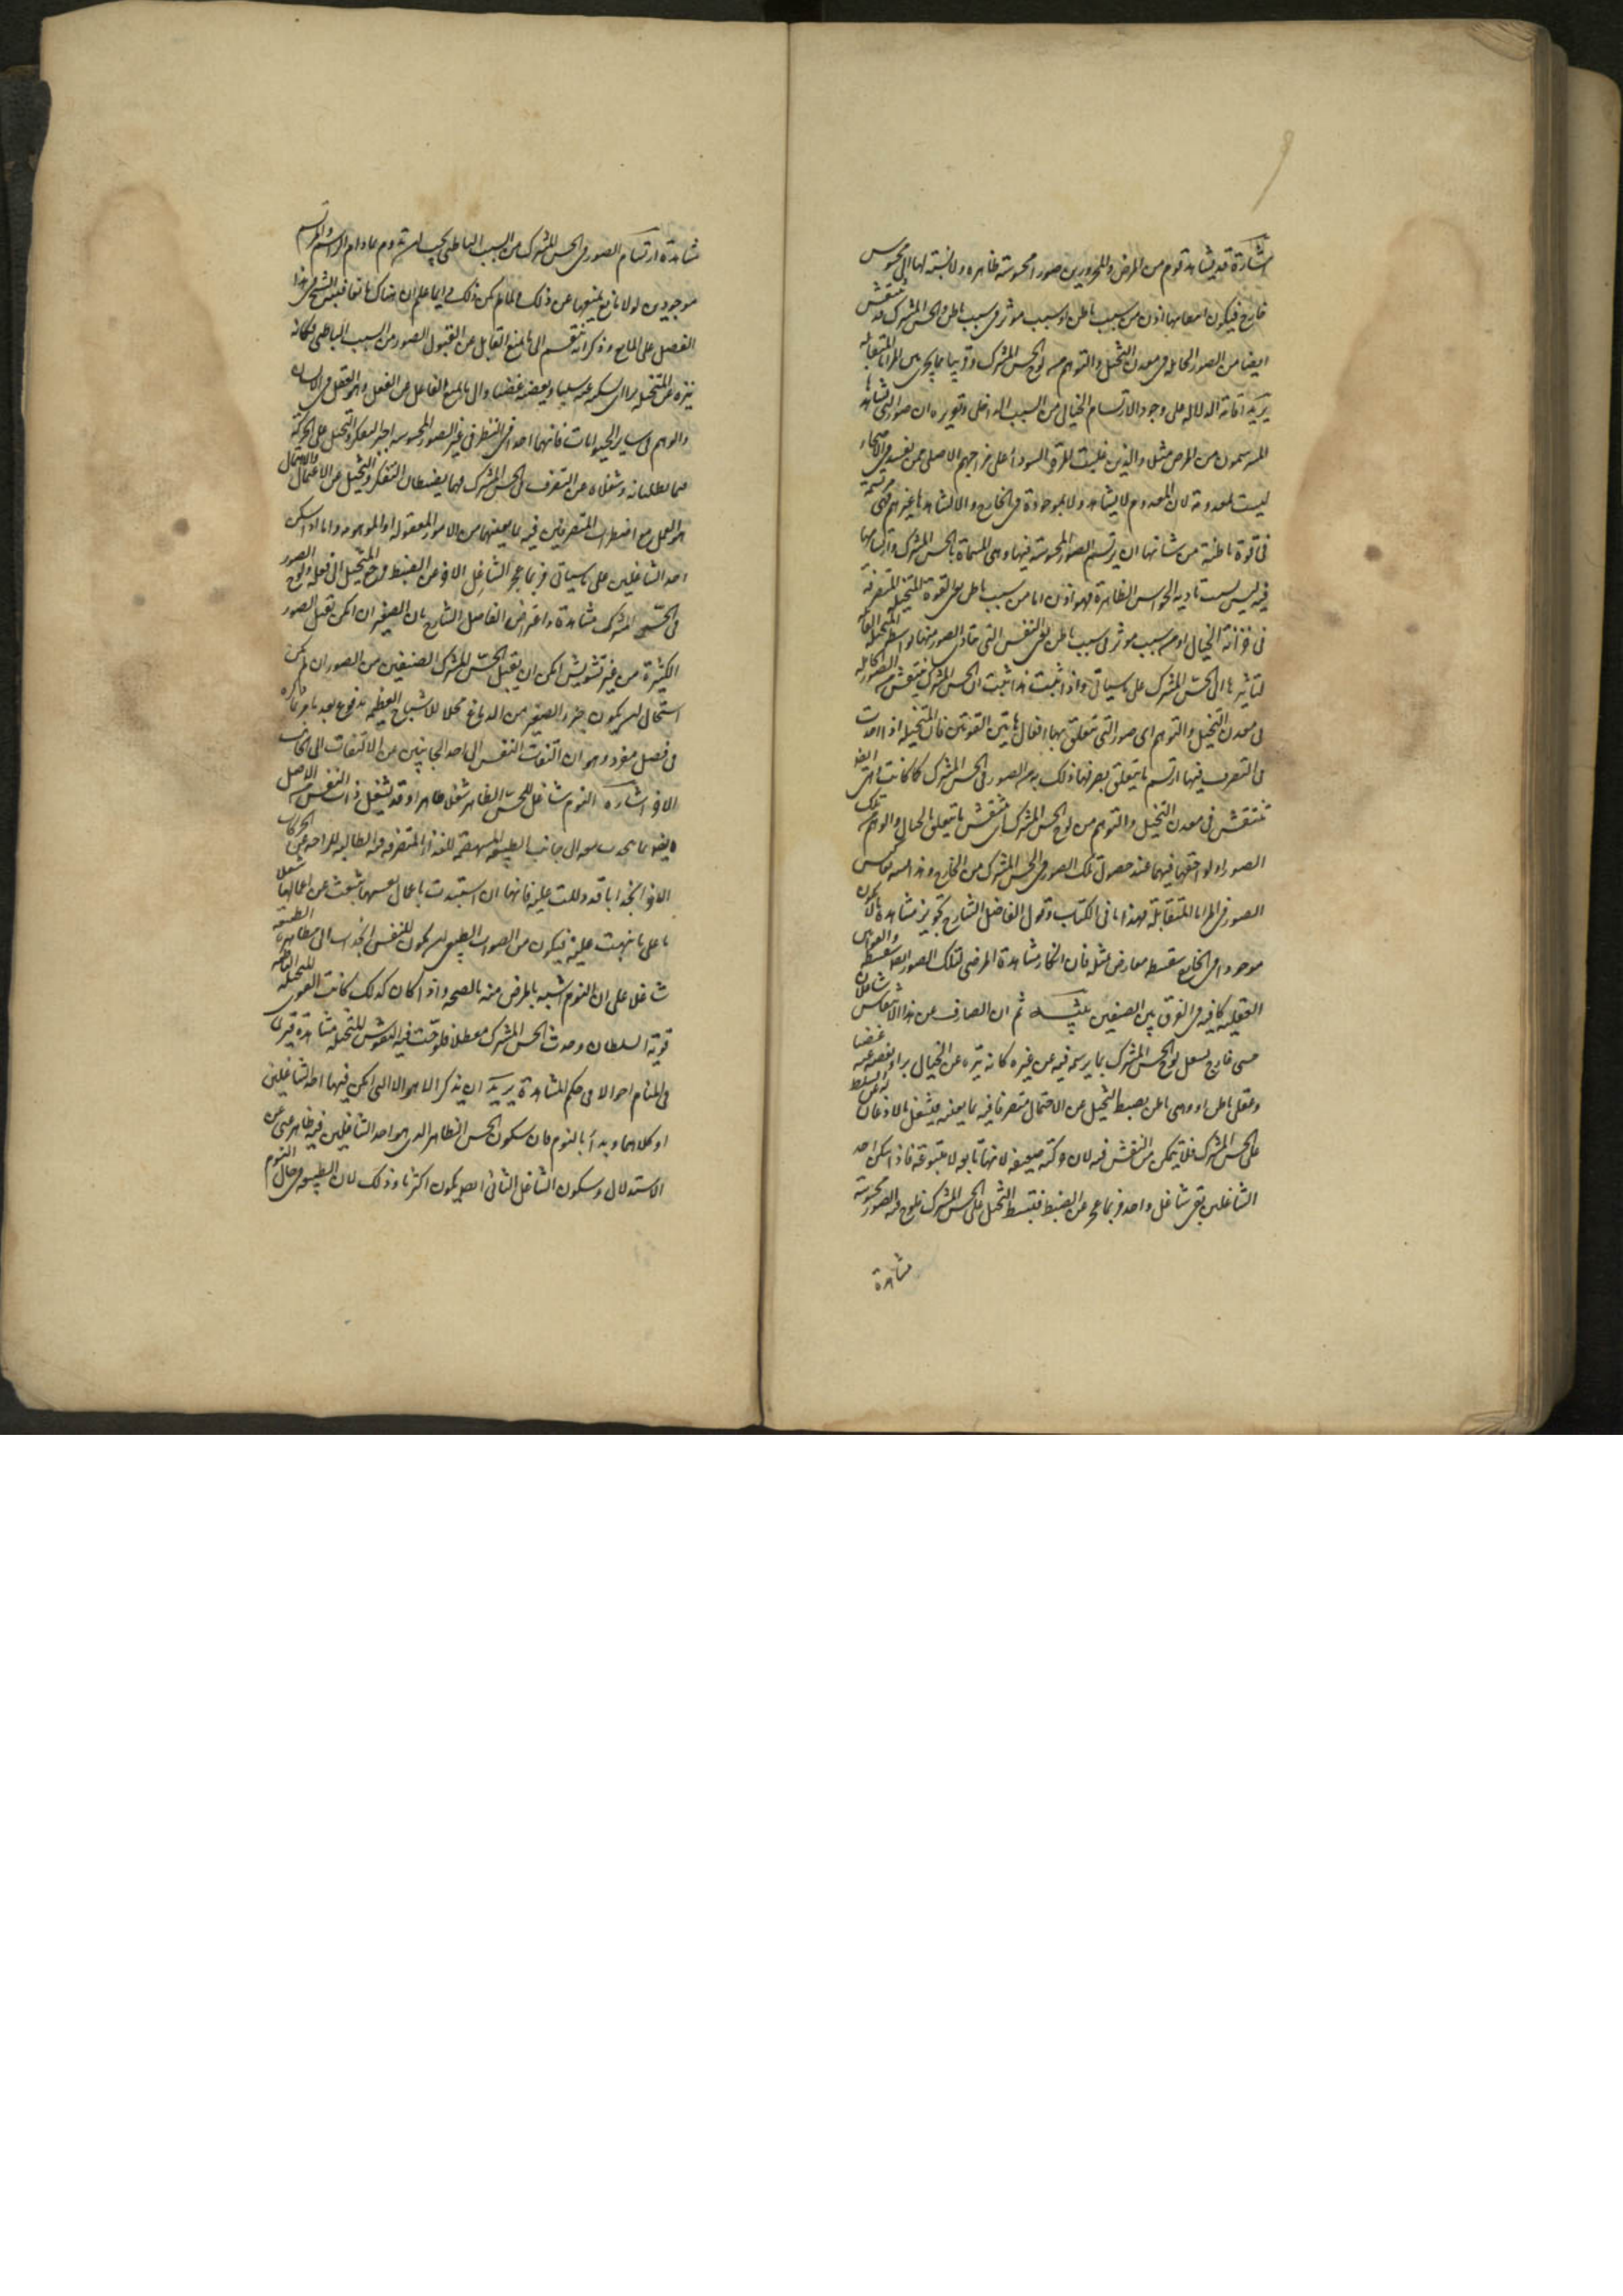 اشارة قد يشاهد قوم من المرضى والممرورين صورا محسوسة ظاهرة ولا نسبة لها الى محسوس
خارج فيكون انتقاشها اذن من سبب باطن او سبب مؤثر فى سبب باطن والحس المشترك قد ينتقش
ايضا من الصور الجائلة فى معدن التخيل والتوهم من لوح الحس المشترك وقريبا مما يجرى بين المرايا المتقابلة
يريد اقامة الدلالة على وجود الارتسام الخيالى من السبب الداخلى وتقريره ان صورا التى يشاهدها
المبرسمون من المرضى مثلا والذين غلبت المرة السوداء على مزاجهم الاصلى ممن يعد من الاصحاء
ليست بمعدومة لان المعدوم لا يشاهد ولا بموجودة فى الخارج والا لشاهدها غيرهم فهى مرتسمة
فى قوة باطنة من شانها ان يرتسم الصور المحسوسة فيها وهى المسماة بالحس المشترك وارتسامها
فيه ليس بسبب تادية الحواس الظاهرة فهو اذن اما من سبب باطن هى القوة المتخيلة المتصرفة
فى خزانة الخيال او من سبب مؤثر فى سبب باطن هى النفس التى تتادى الصور منها بواسطة المتخيلة القابلة
لتاثيرها الى الحس المشترك على ما سياتى واذا ثبت هذا ثبت ان الحس المشترك ينتقش من الصور الجائلة
فى معدن التخيل والتوهم اى صور التى تتعلق بها افعال هاتين القوتين فان المتخيلة اذا اخذت
فى التصرف فيها ارتسم ما يتعلق بصرفها ذلك به من الصور فى الحس المشترك كما كانت هى ايضا
تنتقش فى معدن التخيل والتوهم من لوح الحس المشترك اى تنتقش ما يتعلق بالخيال والوهم من تلك
الصور او لواحقها فيهما عند حصول تلك الصور فى الحس المشترك من الخارج وهذا شبه تعاكس
الصور فى المرايا المتقابلة فهذا ما فى الكتاب وقول الفاضل الشارح تجويز مشاهدة ما لا يكون
موجودا فى الخارج سفسطة معارض بمثله فان انكار مشاهدة المرضى لتلك الصور ايضا سفسطة والقوانين
العقلية كافية فى الفرق بين الصنفين تنبيه ثم ان الصارف عن هذا الانتقاش شاغلان
حسى خارج يشغل لوح الحس المشترك بما يرسمه فيه عن غيره كانه يبزه عن الخيال بزا ويغصبه منه غصبا
وعقلى باطن او وهمى باطن يضبط التخيل عن الاعتمال متصرفا فيه بما يعنيه فيشتغل بالاذعان له عن التسلط
على الحس المشترك فلا يتمكن من النقش فيه لان حركته ضعيفة لانها تابعة لا متبوعة فاذا سكن احد
الشاغلين بقى شاغل واحد فربما عجز عن الضبط فتسلط التخيل على الحس المشترك فلوح فيه الصور محسوسة
مشاهدة
مشاهدة ارتسام الصور فى الحس المشترك من السبب الباطنى يجب ان تدوم ما دام الراسم والمرتسم
موجودين لولا مانع يمنعهما عن ذلك ولما لم يكن ذلك دايما علم ان هناك مانعا فنبه الشيخ فى هذا
الفصل على المانع وذكر انه ينقسم الى ما يمنع القابل عن القبول الصور من السبب الباطنى فكانه
يبزه عن المتخيلة بزا اى يسلبه عنه سلبا ويغصبه غصبا والى ما يمنع الفاعل عن الفعل وهو العقل فى الانسان
والوهم فى ساير الحيوانات فانهما اذا اخذا فى النظر فى غير الصور المحسوسة اجبرا التفكر والتخيل على الحركة
فيما يطلبانه وشغلاه عن التصرف فى الحس المشترك فهما يضبطان التفكر والتخيل عن الاعتمال والاعتمال
هو العمل مع اضطراب المتصرفين فيه بما يعنيهما من الامور المعقولة او الموهومة واما اذا سكن
احد الشاغلين على ما سياتى فربما عجز الشاغل الاخر عن الضبط ورجع التخيل الى فعله ولوح الصور
فى الحس المشترك مشاهدة واعتراض الفاضل الشارح بان الصغير ان امكن تقبل الصور
الكثيرة من غير تشويش امكن ان يقبل الحس المشترك الصنفين من الصور وان لم يكن
استحال ان يكون جزء الصغير من الدماغ محلا للاشباح العظيمة مدفوع بعد ما مر ذكره
فى فصل مفرد وهو ان التفات النفس الى احد الجانبين من الالتفات الى الجانب
الاخر اشارة النوم شاغل للحس الظاهر شغلا ظاهرا وقد يشغل ذات النفس فى الاصل
ايضا بما ينجذب معه الى جانب الطبيعة المستهضمة للغذاء المتصرفة فيه الطالبة للراحة عن الحركات
الاخر انجذابا قد دللت عليه فانها ان استبدت باعمال نفسها شغلت عن اعمالها شغلا
ما على ما نبهت عليه فيكون من الصواب الطبيعى ان يكون للنفس انجذاب الى مظاهرة الطبيعة
شاغلا على ان النوم اشبه بالمرض منه بالصحة واذا كان كذلك كانت القوى المتخيلة الباطنة
قوية السلطان وجدت الحس المشترك معطلا فلوحت فيه النقوش المتخيلة مشاهدة فيرى
فى المنام احوالا فى حكم المشاهدة يريد ان يذكر الاحوال التى يكن فيها احد الشاغلين
او كلاهما وبدأ بالنوم فان سكون الحس الظاهر الذى هو احد الشاغلين فيه ظاهر غنى عن
الاستدلال وسكون الشاغل الثانى ايضا يكون اكثريا وذلك لان الطبيعة فى حال النوم